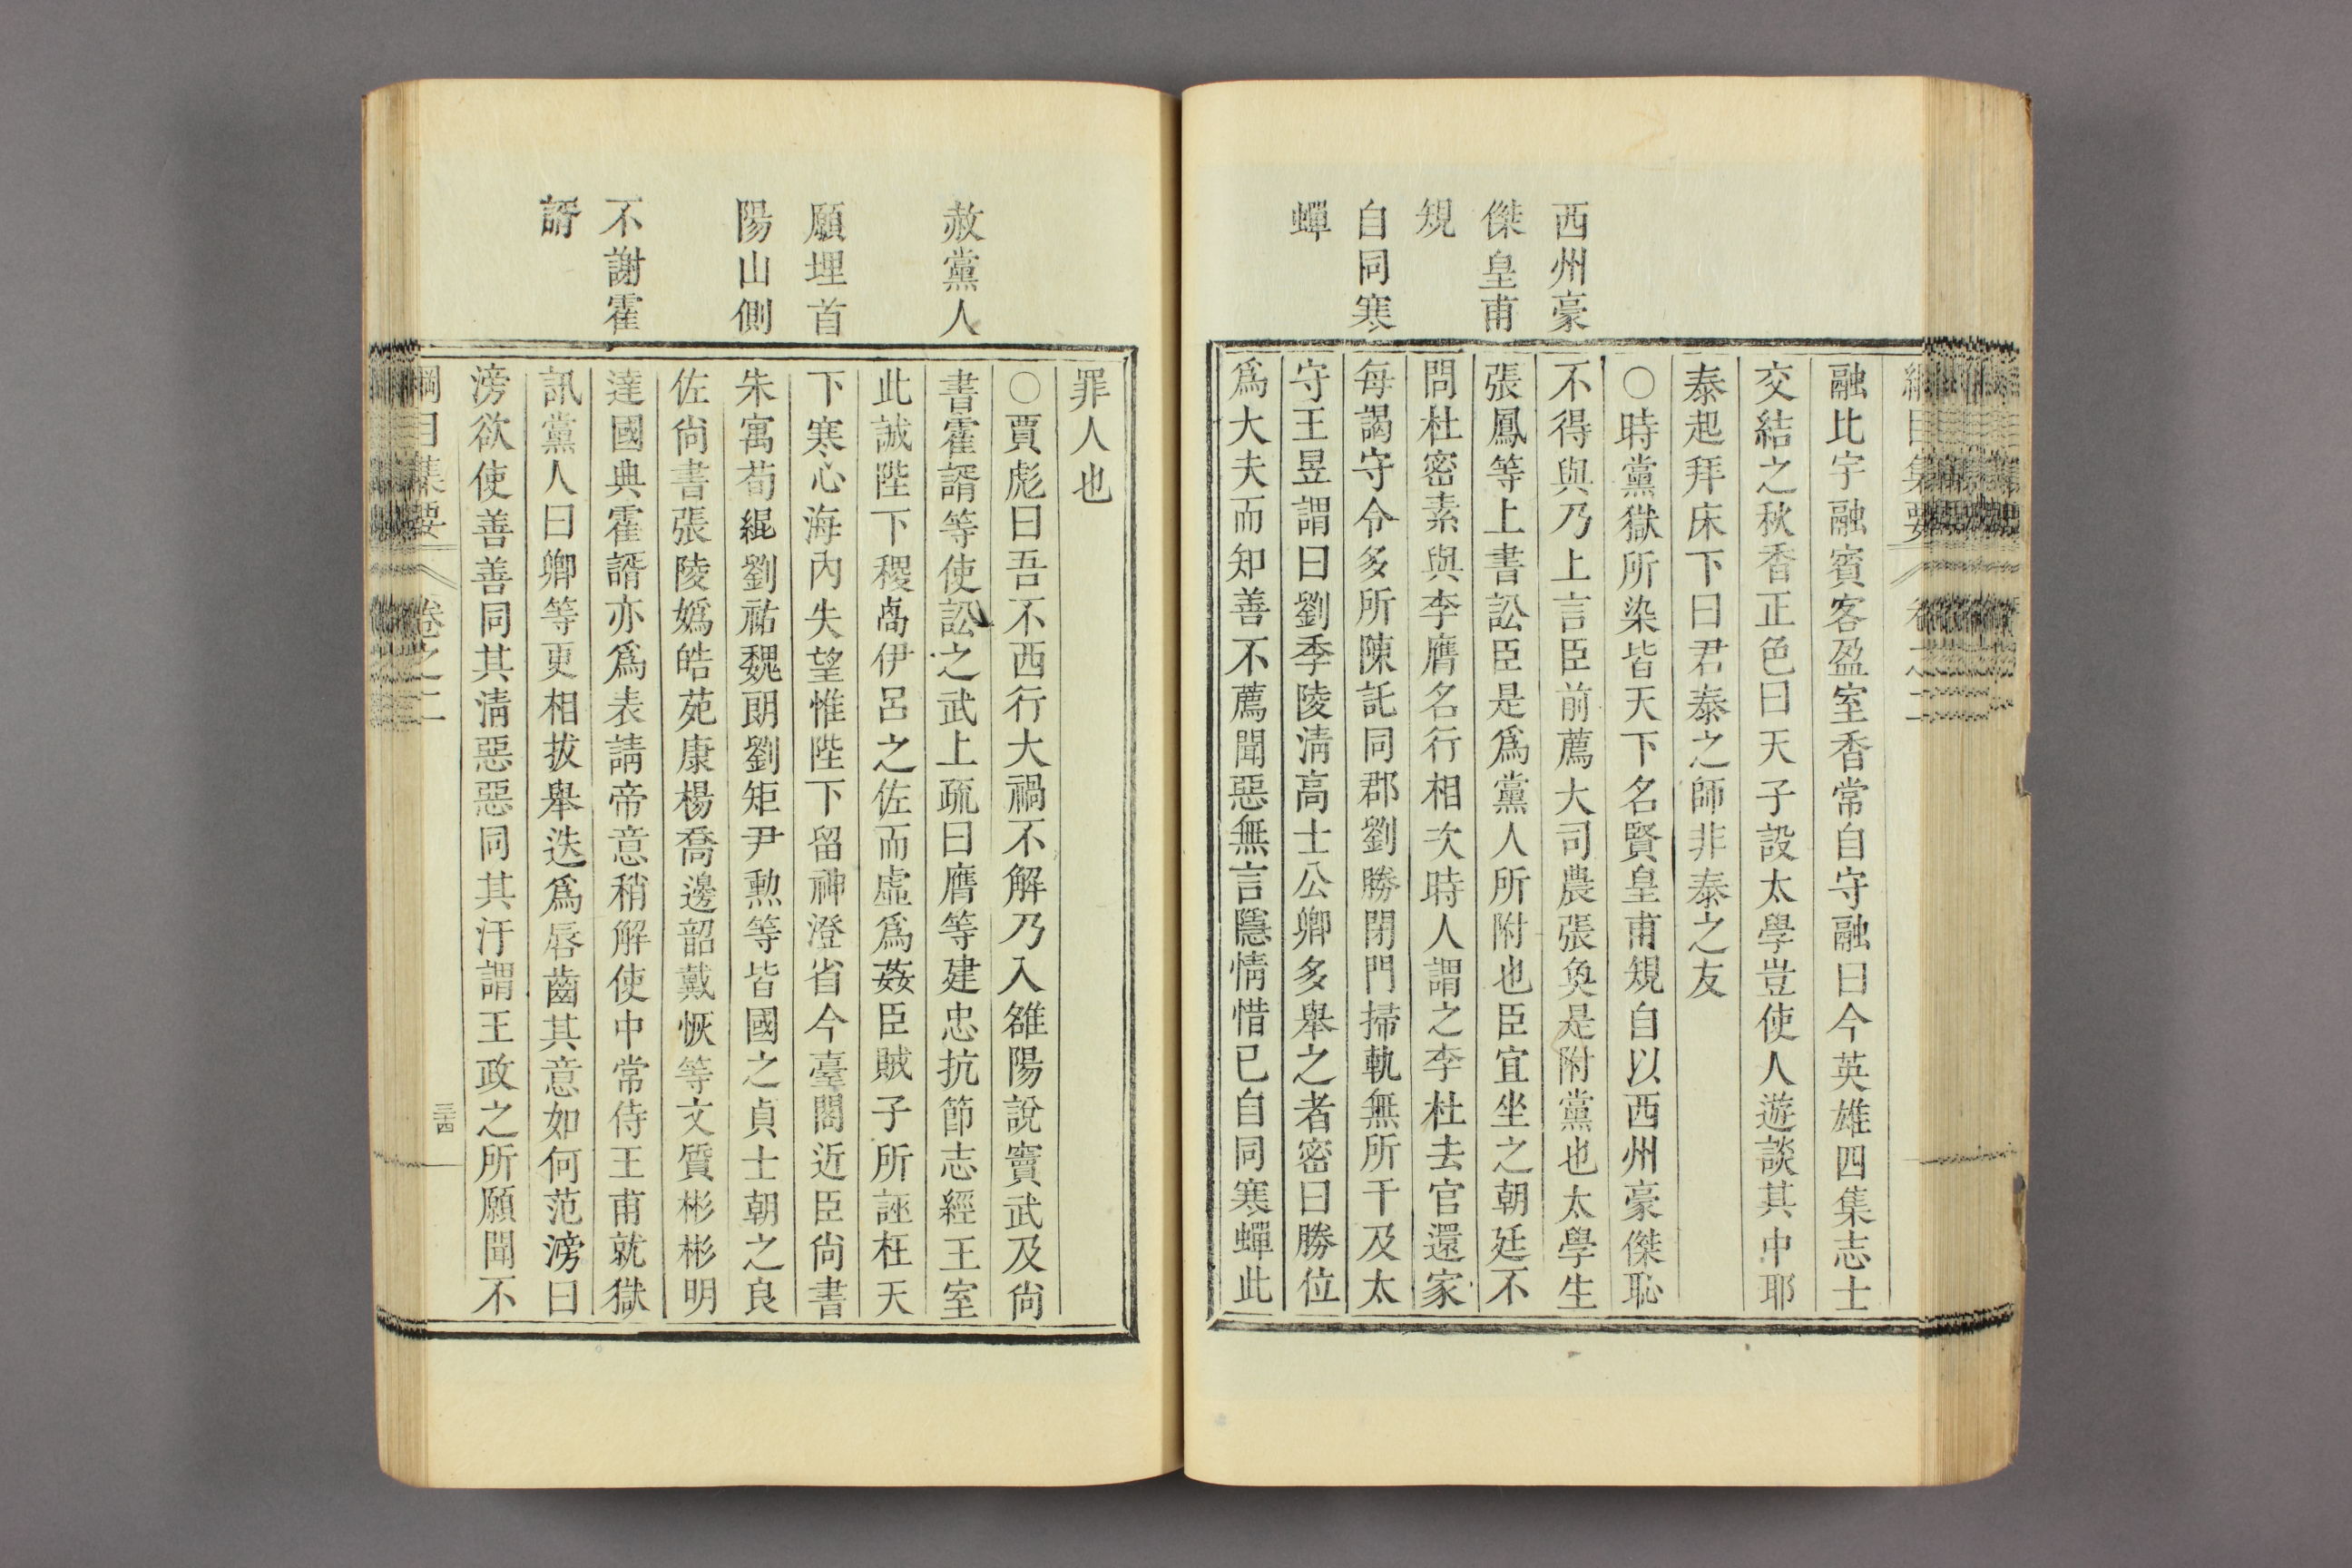 西州豪
傑皇甫
規
自同寒
蟬
融比宇融賓客盈室香常自守融曰今英雄四集志士
交結之秋香正色曰天子設太學豈使人遊談其中耶
泰起拜床下曰君泰之師非泰之友
○時黨獄所染皆天下名賢皇甫規自以西州豪傑恥
不得與乃上言臣前薦大司農張奐是附黨也太學生
張鳳等上書訟臣是爲黨人所附也臣宜坐之朝廷不
問杜密素與李膺名行相次時人謂之李杜去官還家
每謁守令多所陳託同郡劉勝閉門掃軌無所干及太
守王昱謂曰劉季陵淸高士公卿多舉之者密曰勝位
爲大夫而知善不薦聞惡無言隱情惜已自同寒蟬此
赦黨人
願埋首
陽山側
不謝霍
諝
罪人也
○賈彪曰吾不西行大禍不解乃入雒陽說竇武及尙
書霍諝等使訟之武上疏曰膺等建忠抗節志經王室
此誠陛下稷卨伊呂之佐而虛爲姦臣賊子所誣枉天
下寒心海內失望惟陛下留神澄省今臺閣近臣尙書
朱寓荀緄劉祐魏朗劉矩尹勲等皆國之貞士朝之良
佐尙書張陵嬀皓苑康楊喬邊韶戴恢等文質彬彬明
達國典霍諝亦爲表請帝意稍解使中常侍王甫就獄
訊黨人曰卿等更相拔舉迭爲唇齒其意如何范滂曰
滂欲使善善同其淸惡惡同其汙謂王政之所願聞不
綱目集要 卷之二 三十四